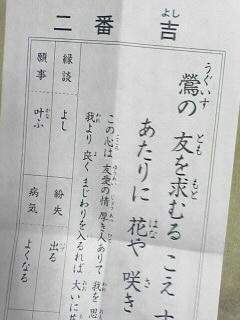 二番 吉
よし
うぐいす とも もと
鶯の 友を求むる こえ す
はな さ
あたりに 花や 咲き
この心は 友愛の情 厚き人ありて 我を思
我より 良く まじわりを入るれば 大いに
縁談 よし 紛失 出る
願事 叶ふ 病気 よくなる